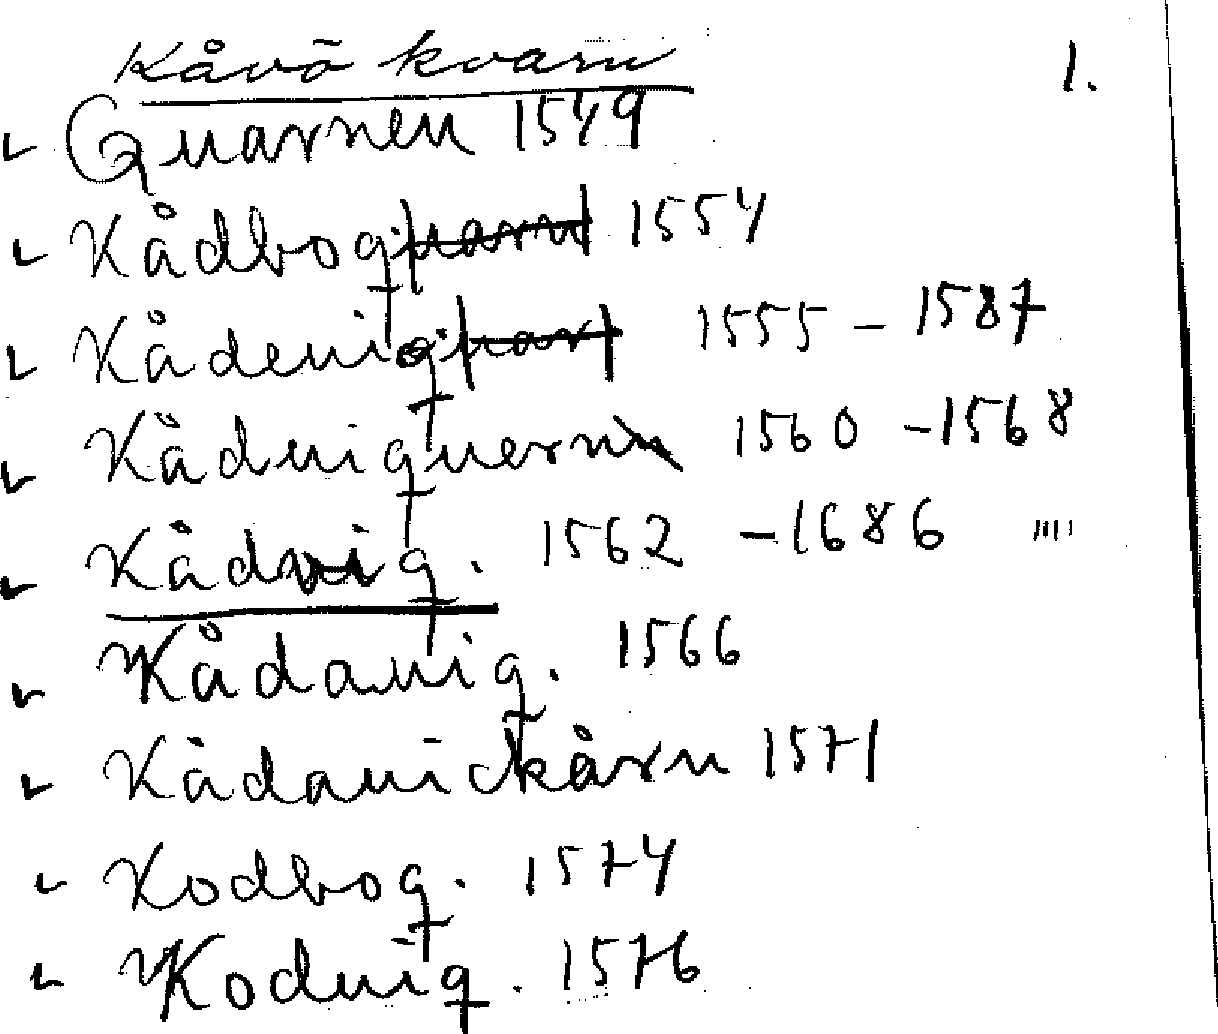 Kåvö kvarn 1.
Quarnen 1549
Kådboq. 1554
Kådeuiq. 1555 – 1587
Kåduiquern 1560 – 1568
Kådviq. 1562 – 1686 ""
Kådauiq. 1566
Kådauickårn 1571
Kodboq. 1574
Koduiq. 1576